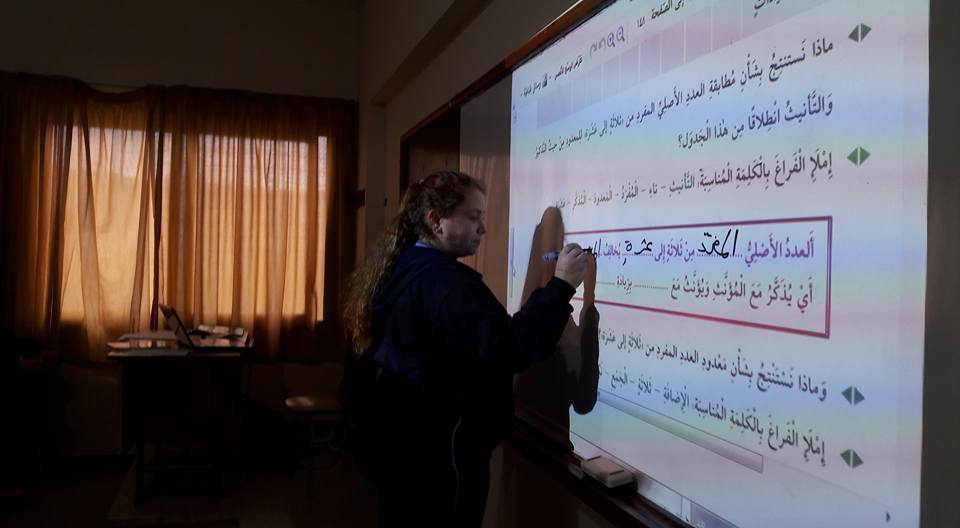 إلى الصّفحة ١٤٨
ماذا نَستنتِجُ بِشَأنِ مُطابقةِ العددِ الأَصليِّ المفردِ من «ثلاثةٍ إلى عشَرة» للمعدودِ مِن حيثُ التّذكيرُ
وَالتَّأنيثُ انْطِلاقًا مِن هٰذا الْجَدوَل؟
إِمْلَإِ الْفَراغَ بِالْكَلِمَةِ الْمُناسِبَةِ: التَّأنيثِ - تاءٍ - الْمُفرَدُ - الْمَعدودَ - الْمُذَكَّر -
اَلعددُ الأَصْلِيُّ المفرد مِنْ ثَلاثَةٍ إِلى عشرة يُخالِفُ
أَيْ يُذَكَّرُ مَعَ الْمُؤَنَّثِ وَيُؤَنَّثُ مَعَ ............ بِزِيادَةِ
وَماذا نَسْتَنْتِجُ بِشَأنِ مَعْدودِ العددِ المفردِ من «ثلاثةٍ إلى عَشَرة»؟
إِمْلَإِ الْفَراغَ بِالْكَلِمَةِ الْمُناسِبَةِ: الإضافَةِ - ثَلاثَةٍ - الْجَمْعِ -